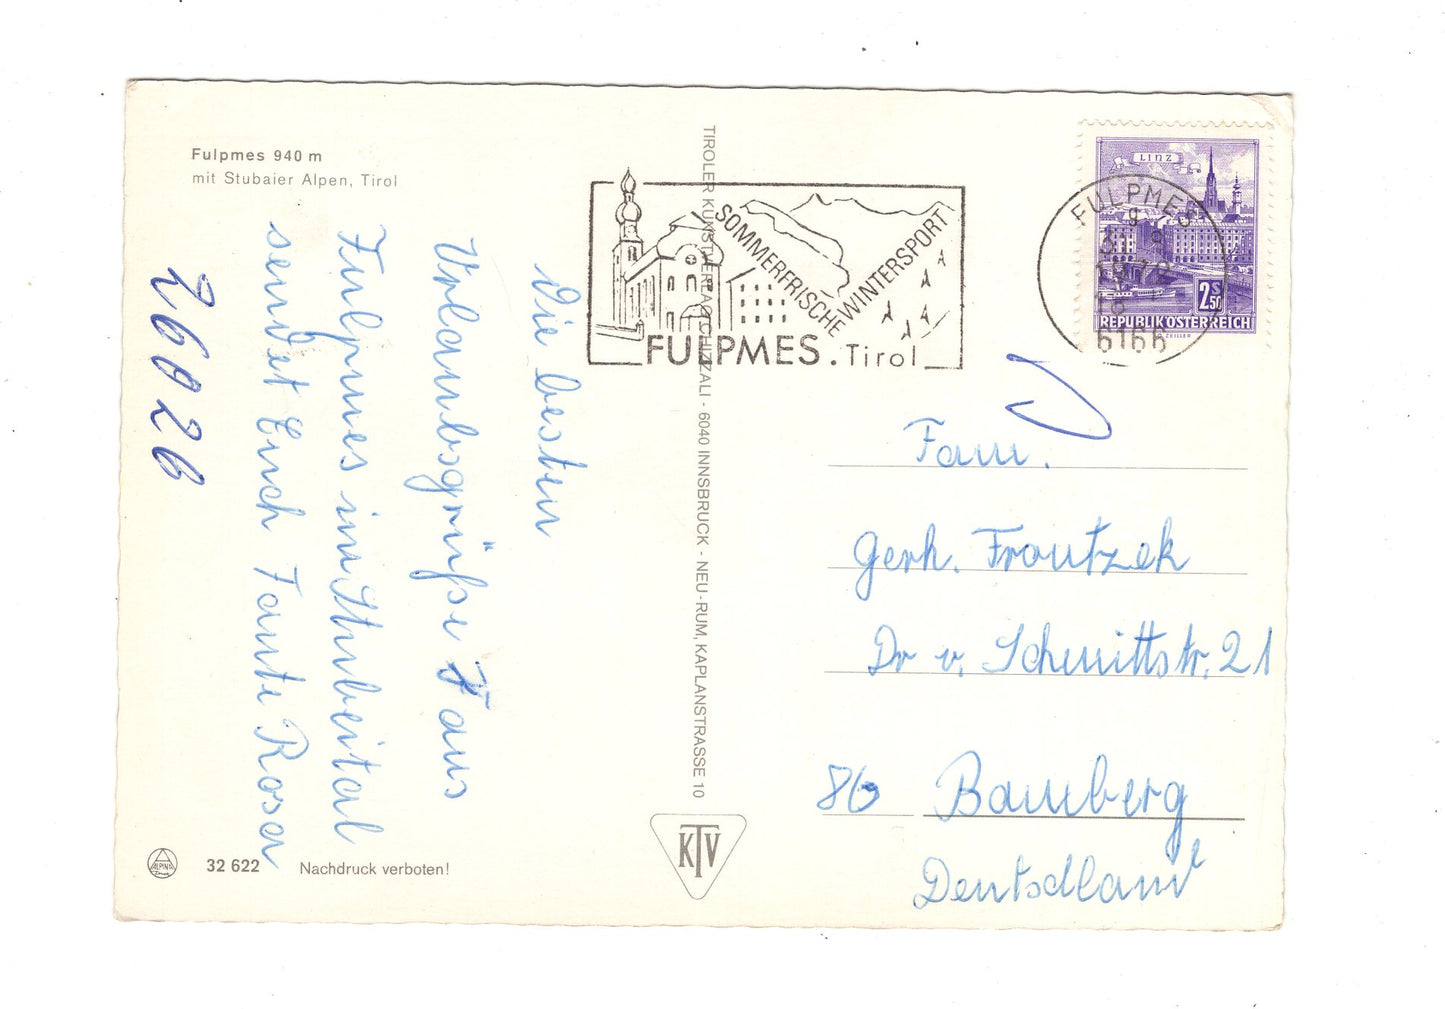 Fulpmes 940 m
mit Stubaier Alpen, Tirol
Die besten
Urlaubsgrüße aus
Fulpmes im Stubeital
sendet Euch Tante Roser
26026
32 622
Nachdruck verboten!
ALPINA
TIROLER KUNSTVERLAG CHIZZALI - 6040 INNSBRUCK - NEU-RUM, KAPLANSTRASSE 10
KTV
SOMMERFRISCHE
WINTERSPORT
FULPMES. Tirol
LINZ
2 S 50
REPUBLIK ÖSTERREICH
FULPMES
6166
Fam.
Gerh. Frontzek
Dr v. Schmittstr. 21
86 Bamberg
Deutschland